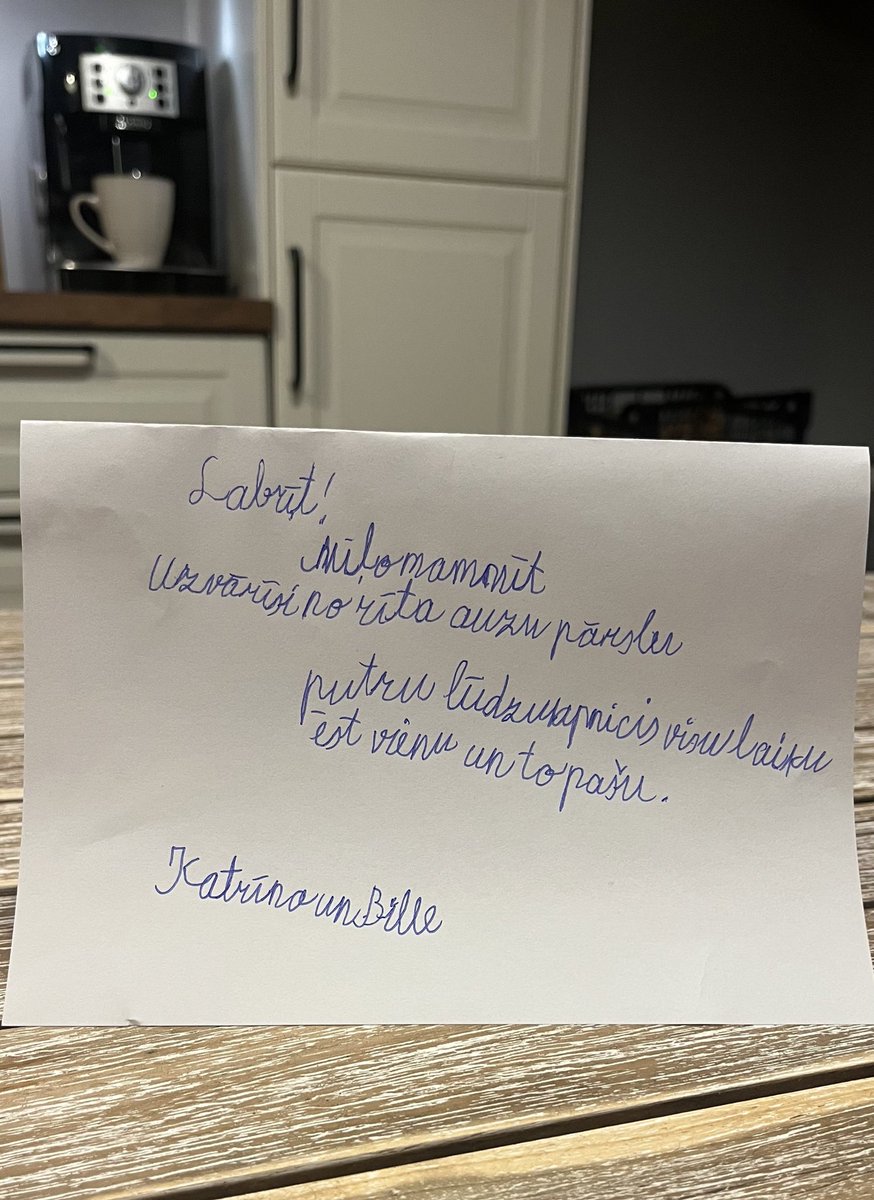 Labrīt!
Mīļo mammīt
Uzvārīsi no rīta auzu pārslu
putru lūdzu apnicis visu laiku
ēst vienu un to pašu.
Katrīna un Bille